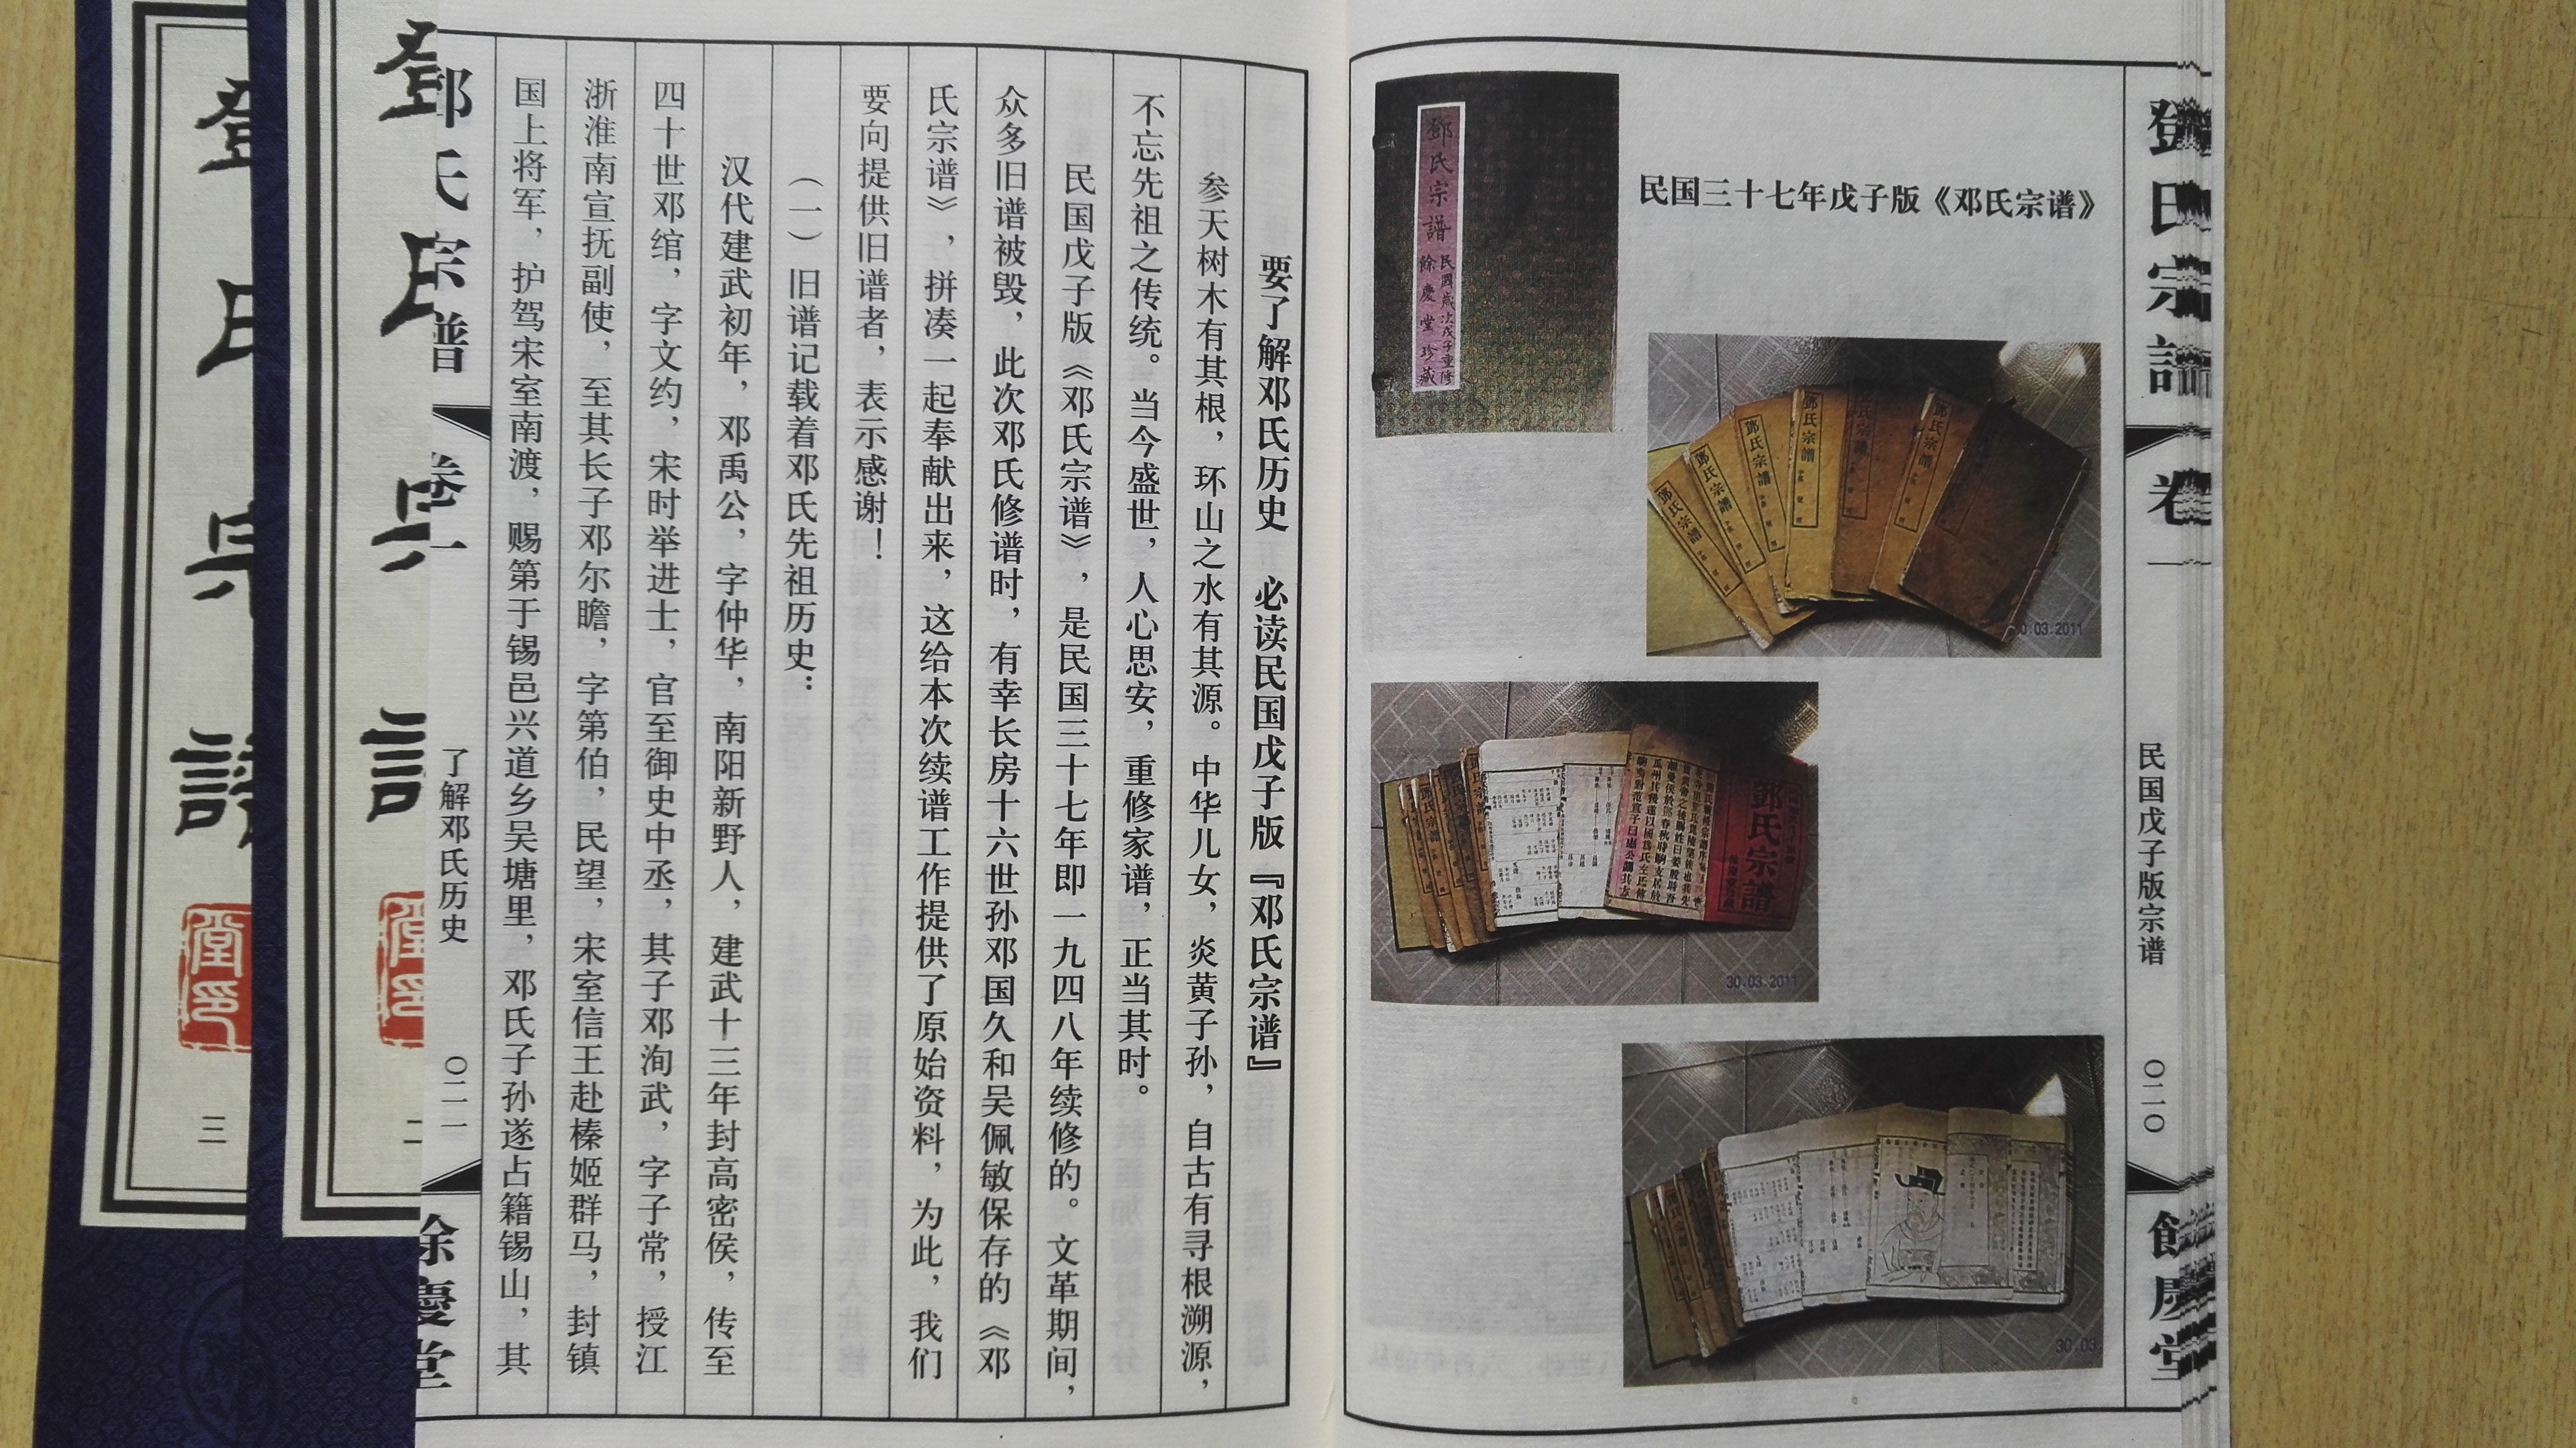 鄧氏宗譜
卷一
民国戊子版宗谱
〇二〇
餘慶堂
民国三十七年戊子版《邓氏宗谱》
鄧氏宗譜
民國歲次戊子重修
餘慶堂珍藏
鄧氏宗譜
鄧氏宗譜
鄧氏宗譜
鄧氏宗譜
鄧氏宗譜
鄧氏宗譜
30.03.2011
鄧氏宗譜
30.03.2011
30.03
要了解邓氏历史 必读民国戊子版『邓氏宗谱』
参天树木有其根，环山之水有其源。中华儿女，炎黄子孙，自古有寻根溯源，
不忘先祖之传统。当今盛世，人心思安，重修家谱，正当其时。
民国戊子版《邓氏宗谱》，是民国三十七年即一九四八年续修的。文革期间，
众多旧谱被毁，此次邓氏修谱时，有幸长房十六世孙邓国久和吴佩敏保存的《邓
氏宗谱》，拼凑一起奉献出来，这给本次续谱工作提供了原始资料，为此，我们
要向提供旧谱者，表示感谢！
（一）旧谱记载着邓氏先祖历史：
汉代建武初年，邓禹公，字仲华，南阳新野人，建武十三年封高密侯，传至
四十世邓绾，字文约，宋时举进士，官至御史中丞，其子邓洵武，字子常，授江
浙淮南宣抚副使，至其长子邓尔瞻，字第伯，民望，宋室信王赴榛姬群马，封镇
国上将军，护驾宋室南渡，赐第于锡邑兴道乡吴塘里，邓氏子孙遂占籍锡山，其
邓氏宗谱
卷一
了解邓氏历史
〇二一
餘慶堂
鄧氏宗譜
二
鄧氏宗譜
堂印
三